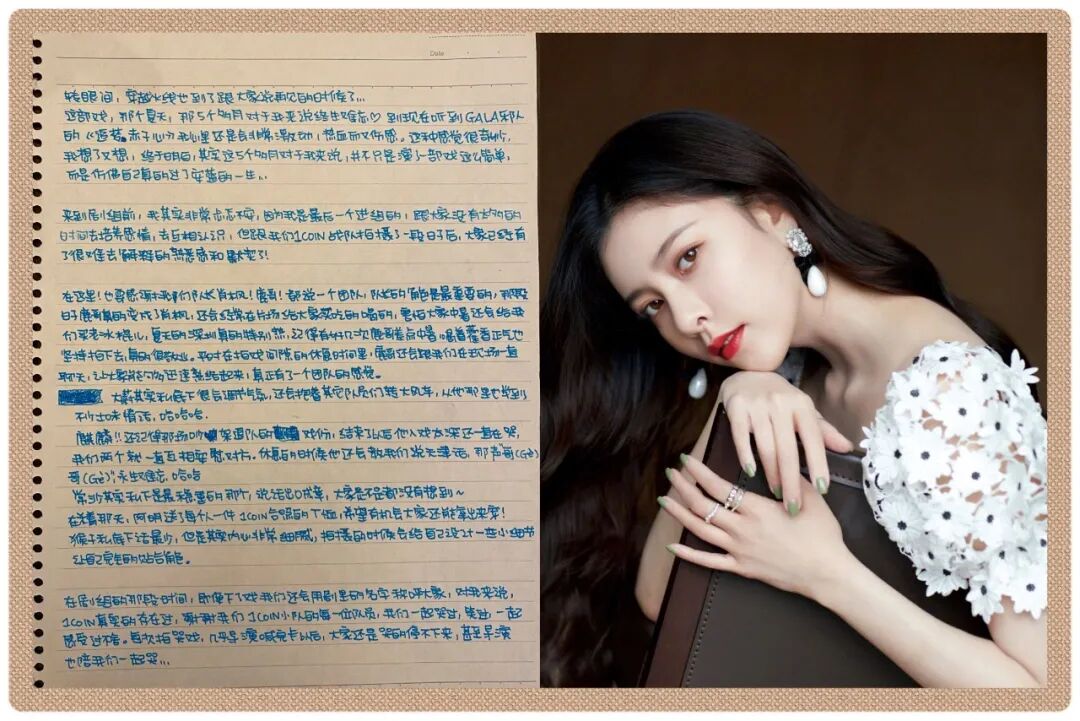 Date
转眼间，穿越火线也到了跟大家说再见的时候了...
这部戏，那个夏天，那5个多月对于我来说终生难忘♡ 到现在听到GALA乐队
的《追梦赤子心》我心里还是会非常激动，热血而又伤感。这种感觉很奇妙，
我想了又想，终于明白，其实这5个多月对于我来说，并不只是演了一部戏这么简单，
而是仿佛自己真的过了安蓝的一生...
来到剧组前，我其实非常忐忑不安，因为我是最后一个进组的，跟大家没有太多的
时间去培养感情，去互相认识，但跟我们1COIN战队拍摄了一段日子后，大家已经有
了很难去解释的熟悉感和默契了！
在这里！也要感谢我们队长肖枫！鹿哥！都说一个团队，队长的能量是最重要的，那段
日子鹿哥真的变成了肖枫，还会经常在片场给大家买吃的喝的，是怕大家中暑还会给我
们买老冰棍儿，夏天的深圳真的特别热，记得有好几次鹿哥差点中暑，喝着藿香正气也
坚持拍下去，真的很敬业。平时在拍戏间隙的休息时间里，鹿哥还会跟我们在现场一直
聊天，让大家能够迅速熟络起来，真正有了一个团队的感觉。
大蔚其实私底下很会调节气氛，还会抱着其它队员们转大风车，从他那里也学到
不少土味情话，哈哈哈。
麒麟！！还记得那场吵架退队的戏份，结束了以后他入戏太深还一直在哭，
我们两个就一直互相安慰对方。休息的时候他还会教我们说天津话，那声哥(Gě)
哥(Gè)永生难忘，哈哈
常沙其实私下是最稳重的那个，说话出口成章，大家是不是都没有想到~
在着那天，阿明送了每个人一件1COIN合照的T恤，希望有机会大家还能穿出来穿！
猴子私底下话最少，但是其实内心非常细腻，拍摄的时候会给自己设计一些小细节
让自己完全的贴合角色。
在剧组的那段时间，即使下了戏我们还会用剧里的名字称呼大家，对我来说，
1COIN真实的存在过，谢谢我们1COIN小队的每一位队员，我们一起哭过，笑过，一起
感受过不舍。每次拍哭戏，几乎导演喊完卡以后，大家还是哭的停不下来，甚至导演
也陪我们一起哭...